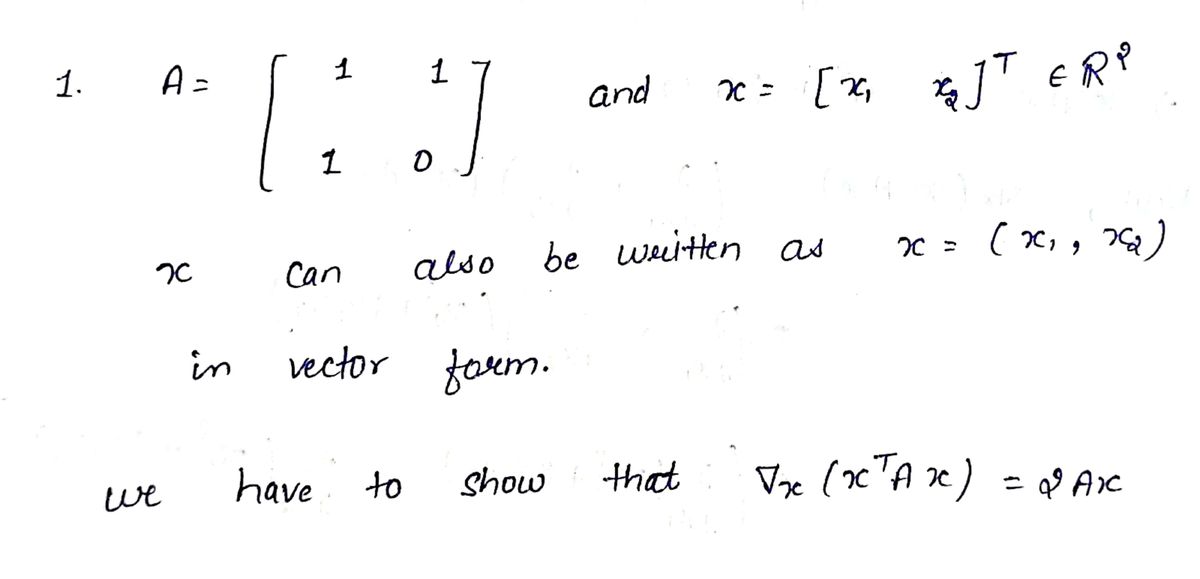 1. A = [ 1 1
1 0 ] and x = [x₁ x₂]ᵀ ∈ ℝ²
x can also be written as x = (x₁, x₂)
in vector form.
we have to show that ∇ₓ (xᵀA x) = 2Ax